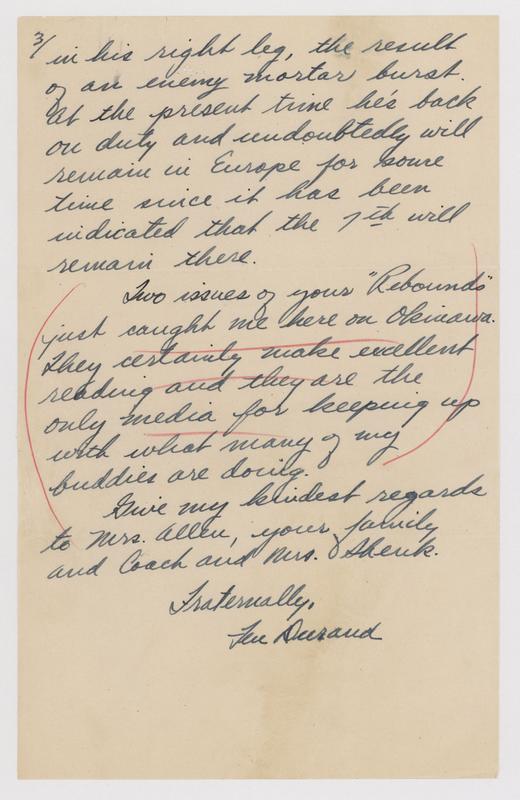 3/
in his right leg, the result
of an enemy mortar burst.
At the present time he's back
on duty and undoubtedly will
remain in Europe for some
time since it has been
indicated that the 7th will
remain there.
Two issues of your "Rebounds"
just caught me here on Okinawa.
They certainly make excellent
reading and they are the
only media for keeping up
with what many of my
buddies are doing.
Give my kindest regards
to Mrs. Allen, your family
and Coach and Mrs. Shenk.
Fraternally,
Durand